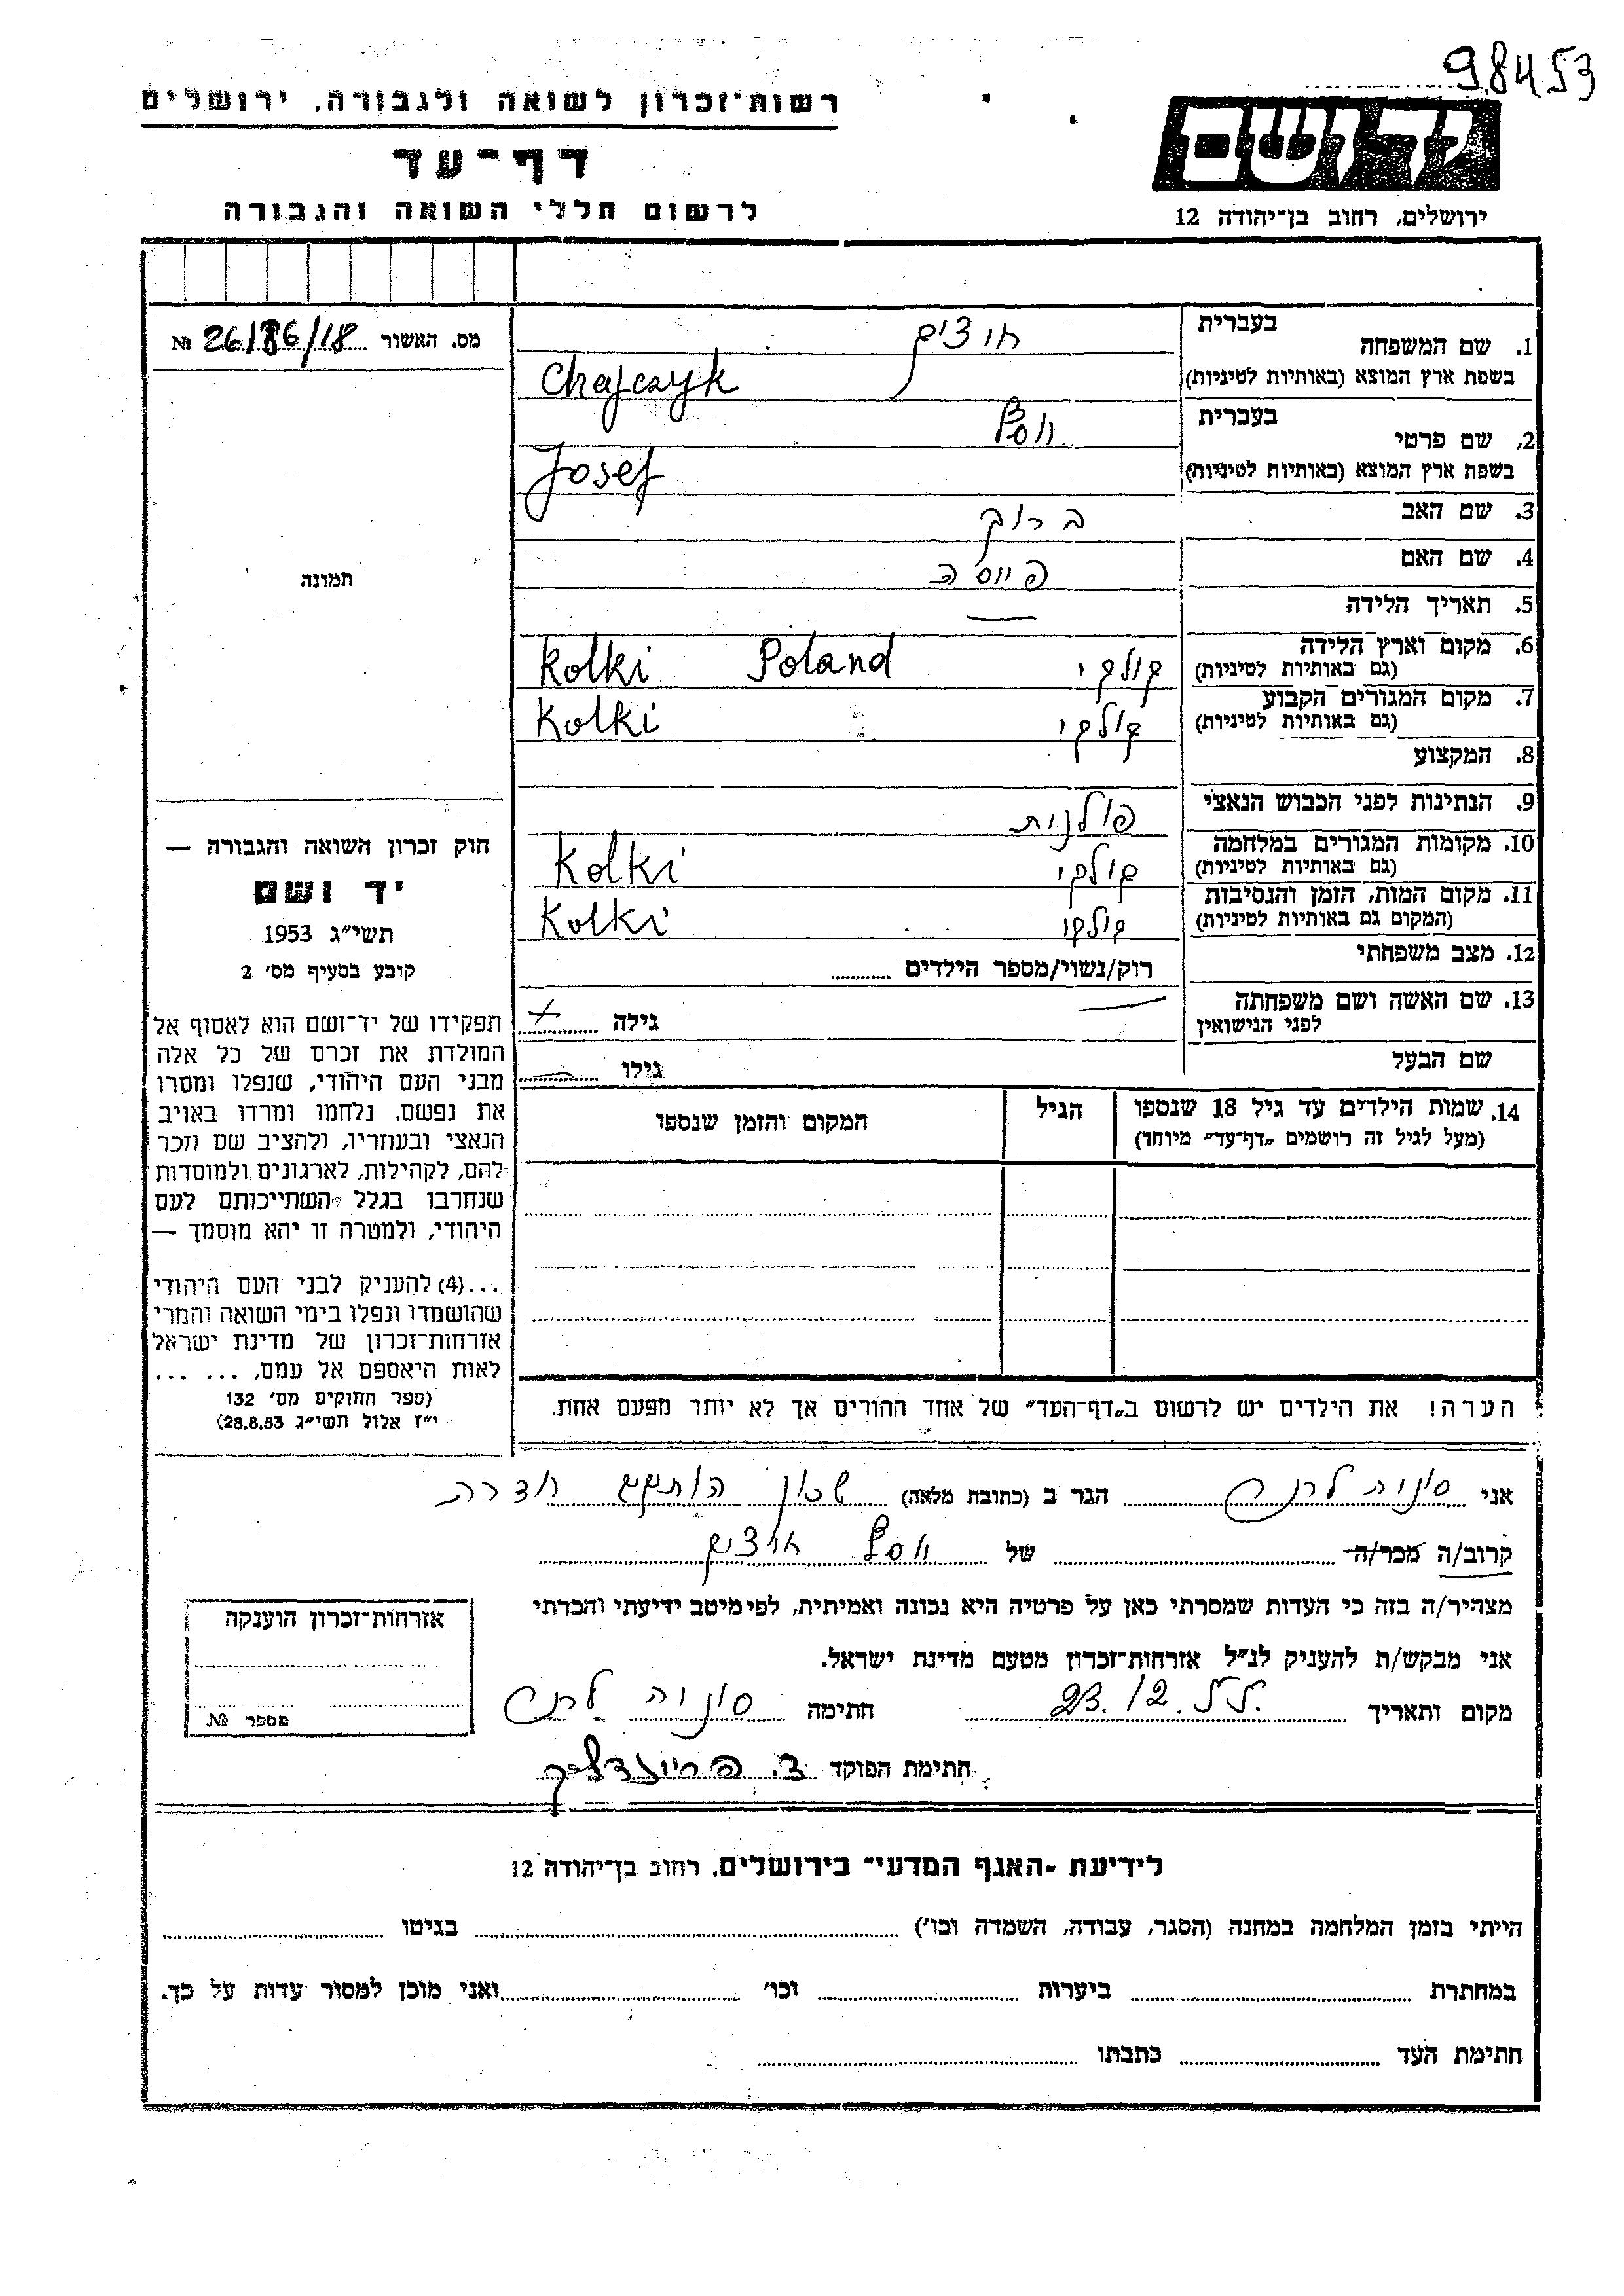 98453
רשות־זכרון לשואה ולגבורה, ירושלים
דף־עד
לרשום חללי השואה והגבורה
יד ושם
ירושלים, רחוב בן־יהודה 12
מס. האשור 26/86/18 №
תמונה
חוק זכרון השואה והגבורה —
יד ושם
תשי״ג 1953
קובע בסעיף מס׳ 2
תפקידו של יד־ושם הוא לאסוף אל
המולדת את זכרם של כל אלה
מבני העם היהודי, שנפלו ומסרו
את נפשם, נלחמו ומרדו באויב
הנאצי ובעוזריו, ולהציב שם וזכר
להם, לקהילות, לארגונים ולמוסדות
שנחרבו בגלל השתייכותם לעם
היהודי, ולמטרה זו יהא מוסמך —
...(4) להעניק לבני העם היהודי
שהושמדו ונפלו בימי השואה והמרי
אזרחות־זכרון של מדינת ישראל
לאות היאספם אל עמם, ... ...
(ספר החוקים מס׳ 132
י״ז אלול תשי״ג 28.8.53)
בעברית
1. שם המשפחה
בשפת ארץ המוצא (באותיות לטיניות) Chajczyk
בעברית
2. שם פרטי יוסף
בשפת ארץ המוצא (באותיות לטיניות) Josef
3. שם האב ברוך
4. שם האם
5. תאריך הלידה —
6. מקום וארץ הלידה
(גם באותיות לטיניות) קולקי Poland Kolki
7. מקום המגורים הקבוע
(גם באותיות לטיניות) קולקי Kolki
8. המקצוע
9. הנתינות לפני הכבוש הנאצי פולנית
10. מקומות המגורים במלחמה
(גם באותיות לטיניות) קולקי Kolki
11. מקום המות, הזמן והנסיבות
(המקום גם באותיות לטיניות) קולקי Kolki
12. מצב משפחתי רוק/נשוי/מספר הילדים
13. שם האשה ושם משפחתה
לפני הנישואין — גילה
שם הבעל גילו
14. שמות הילדים עד גיל 18 שנספו הגיל המקום והזמן שנספו
(מעל לגיל זה רושמים „דף־עד״ מיוחד)
הערה! את הילדים יש לרשום ב„דף־העד״ של אחד ההורים אך לא יותר מפעם אחת.
אני סוניה לרנר הגר ב (כתובת מלאה) שכון הותיקים חדרה
קרוב/ה מכר/ה של יוסף
מצהיר/ה בזה כי העדות שמסרתי כאן על פרטיה היא נכונה ואמיתית, לפי מיטב ידיעתי והכרתי
אני מבקש/ת להעניק לנ״ל אזרחות־זכרון מטעם מדינת ישראל.
מקום ותאריך חתימה סוניה לרנר
חתימת הפוקד
אזרחות־זכרון הוענקה
מספר №
לידיעת „האגף המדעי״ בירושלים, רחוב בן־יהודה 12
הייתי בזמן המלחמה במחנה (הסגר, עבודה, השמדה וכו׳) בגיטו
במחתרת ביערות וכו׳ ואני מוכן למסור עדות על כך.
חתימת העד כתבתו